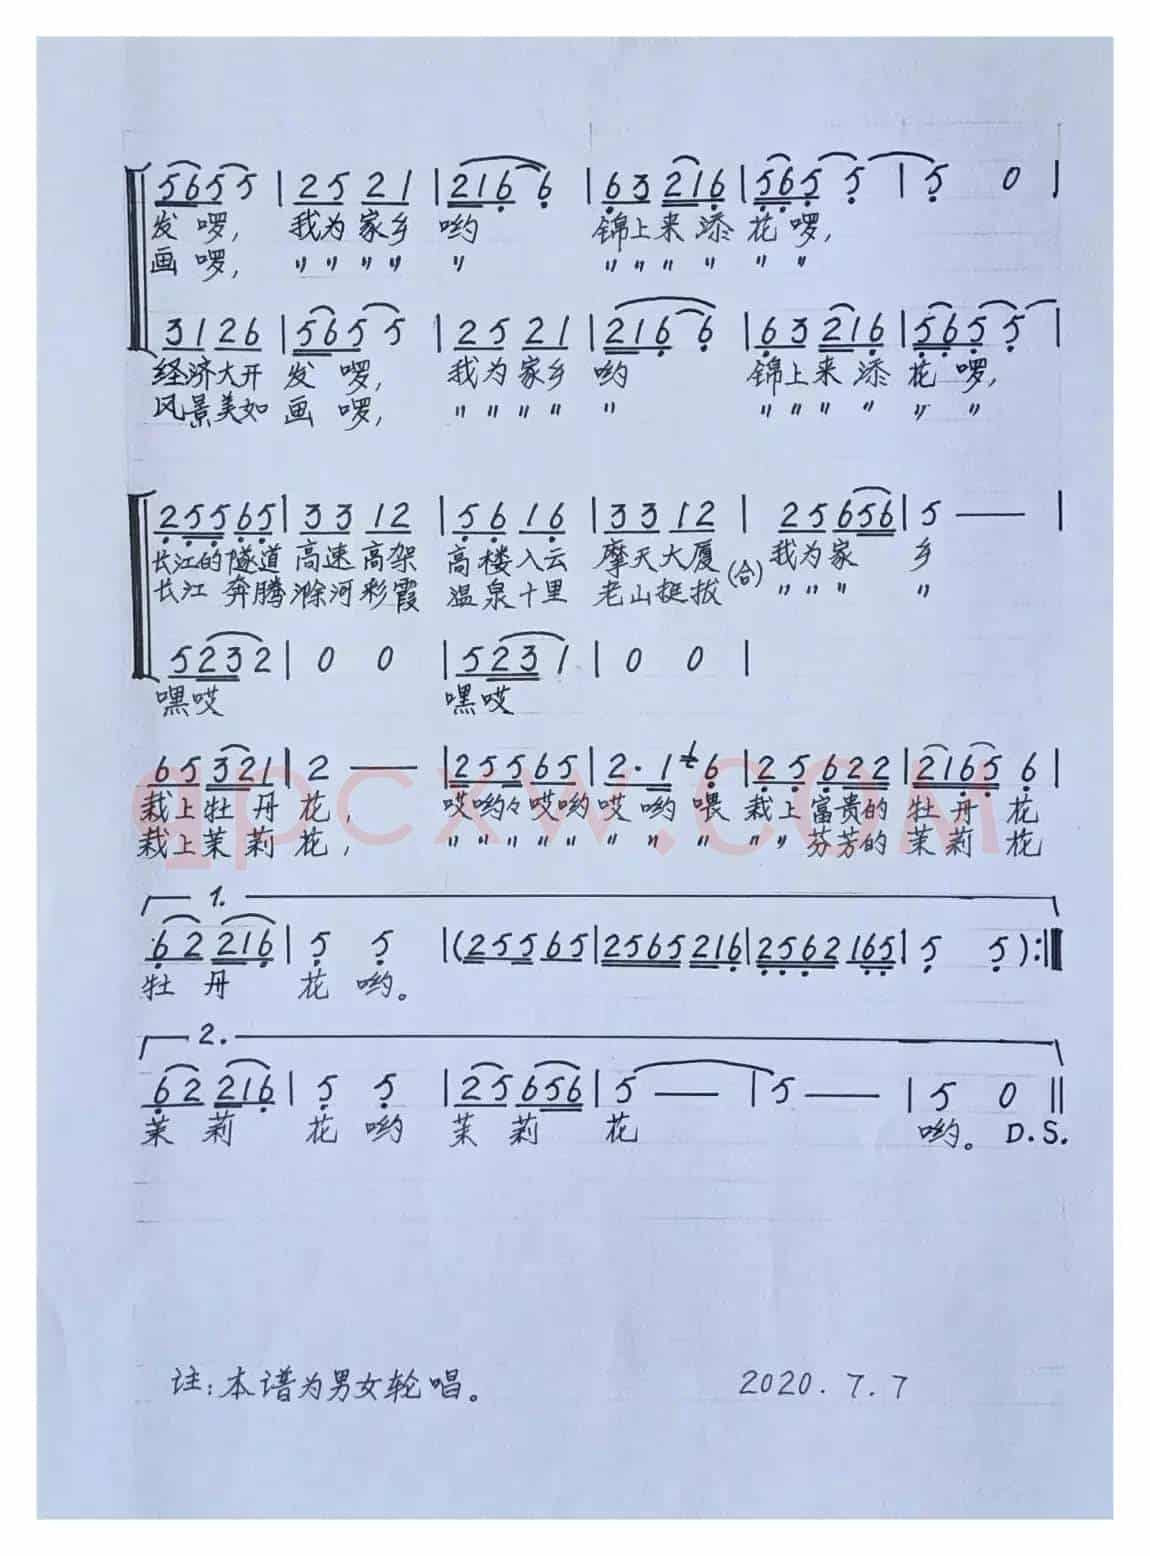 5655 | 25 21 | 216 6 | 63 216 | 565 5 | 5 0 |
发啰, 我为家乡 哟 锦上来添 花啰,
画啰, 〃〃〃〃 〃 〃〃〃〃 〃〃
31 26 | 565 5 | 25 21 | 216 6 | 63 216 | 565 5 |
经济大开 发啰, 我为家乡 哟 锦上来添 花啰,
风景美如 画啰, 〃〃〃〃 〃 〃〃〃〃 〃〃
255 65 | 33 12 | 56 16 | 33 12 | 25656 | 5 — |
长江的隧道 高速高架 高楼入云 摩天大厦 (合) 我为家 乡
长江奔腾 滁河彩霞 温泉十里 老山挺拔 〃〃〃 〃
5232 | 0 0 | 5231 | 0 0 |
嘿哎 嘿哎
65 321 | 2 — | 255 65 | 2· 1 6 | 25 622 | 2165 6 |
栽上牡丹花, 哎哟々哎哟 哎哟喂 栽上富贵的 牡丹花
栽上茉莉花, 〃〃〃〃〃 〃〃〃 〃〃芬芳的 茉莉花
1.
62 216 | 5 5 | (255 65 | 2565 216 | 2562 165 | 5 5 ) :‖
牡丹 花哟。
2.
62 216 | 5 5 | 25 656 | 5 — | 5 — | 5 0 ‖
茉莉 花哟 茉莉 花 哟。 D.S.
注:本谱为男女轮唱。 2020.7.7
qpcxw.com